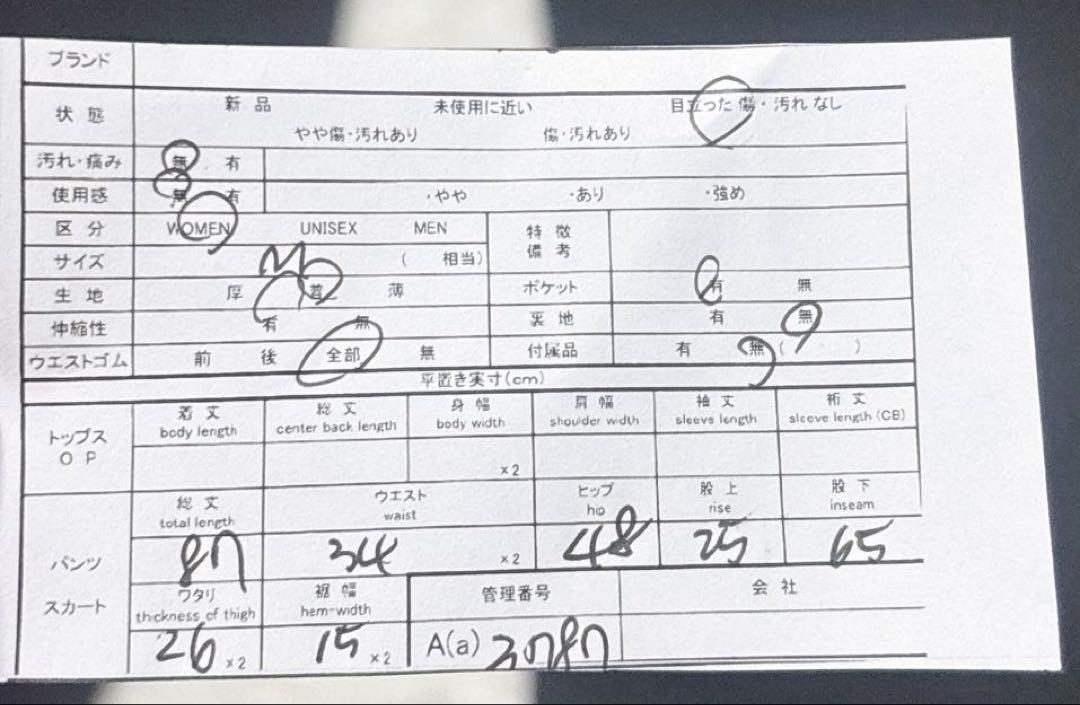 ブランド
状態 新品 未使用に近い 目立った傷・汚れなし
やや傷・汚れあり 傷・汚れあり
汚れ・痛み 無 . 有
使用感 無 有 ・やや ・あり ・強め
区分 WOMEN UNISEX MEN 特徴備考
サイズ M ( 相当)
生地 厚 普 薄 ポケット 有 無
伸縮性 有 無 裏地 有 無
ウエストゴム 前 後 全部 無 付属品 有 無 ( )
平置き実寸(cm)
トップス OP 着丈 総丈 身幅 肩幅 袖丈 裄丈
body length center back length body width shoulder width sleeve length sleeve length (CB)
×2
パンツ スカート 総丈 ウエスト ヒップ 股上 股下
total length waist hip rise inseam
87 34 ×2 48 25 65
ワタリ 裾幅 管理番号 会社
thickness of thigh hem-width
26 ×2 15 ×2 A(a) 3787